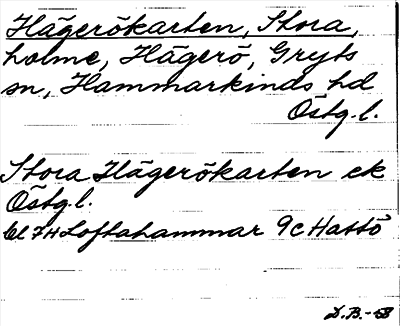 Hägerökarten, Stora,
holme, Hägerö, Gryts
sn, Hammarkinds hd
Östg.l.
Stora Hägerökarten ek
Östg.l.
bl 7H Loftahammar 9c Hattö
D.B.-58